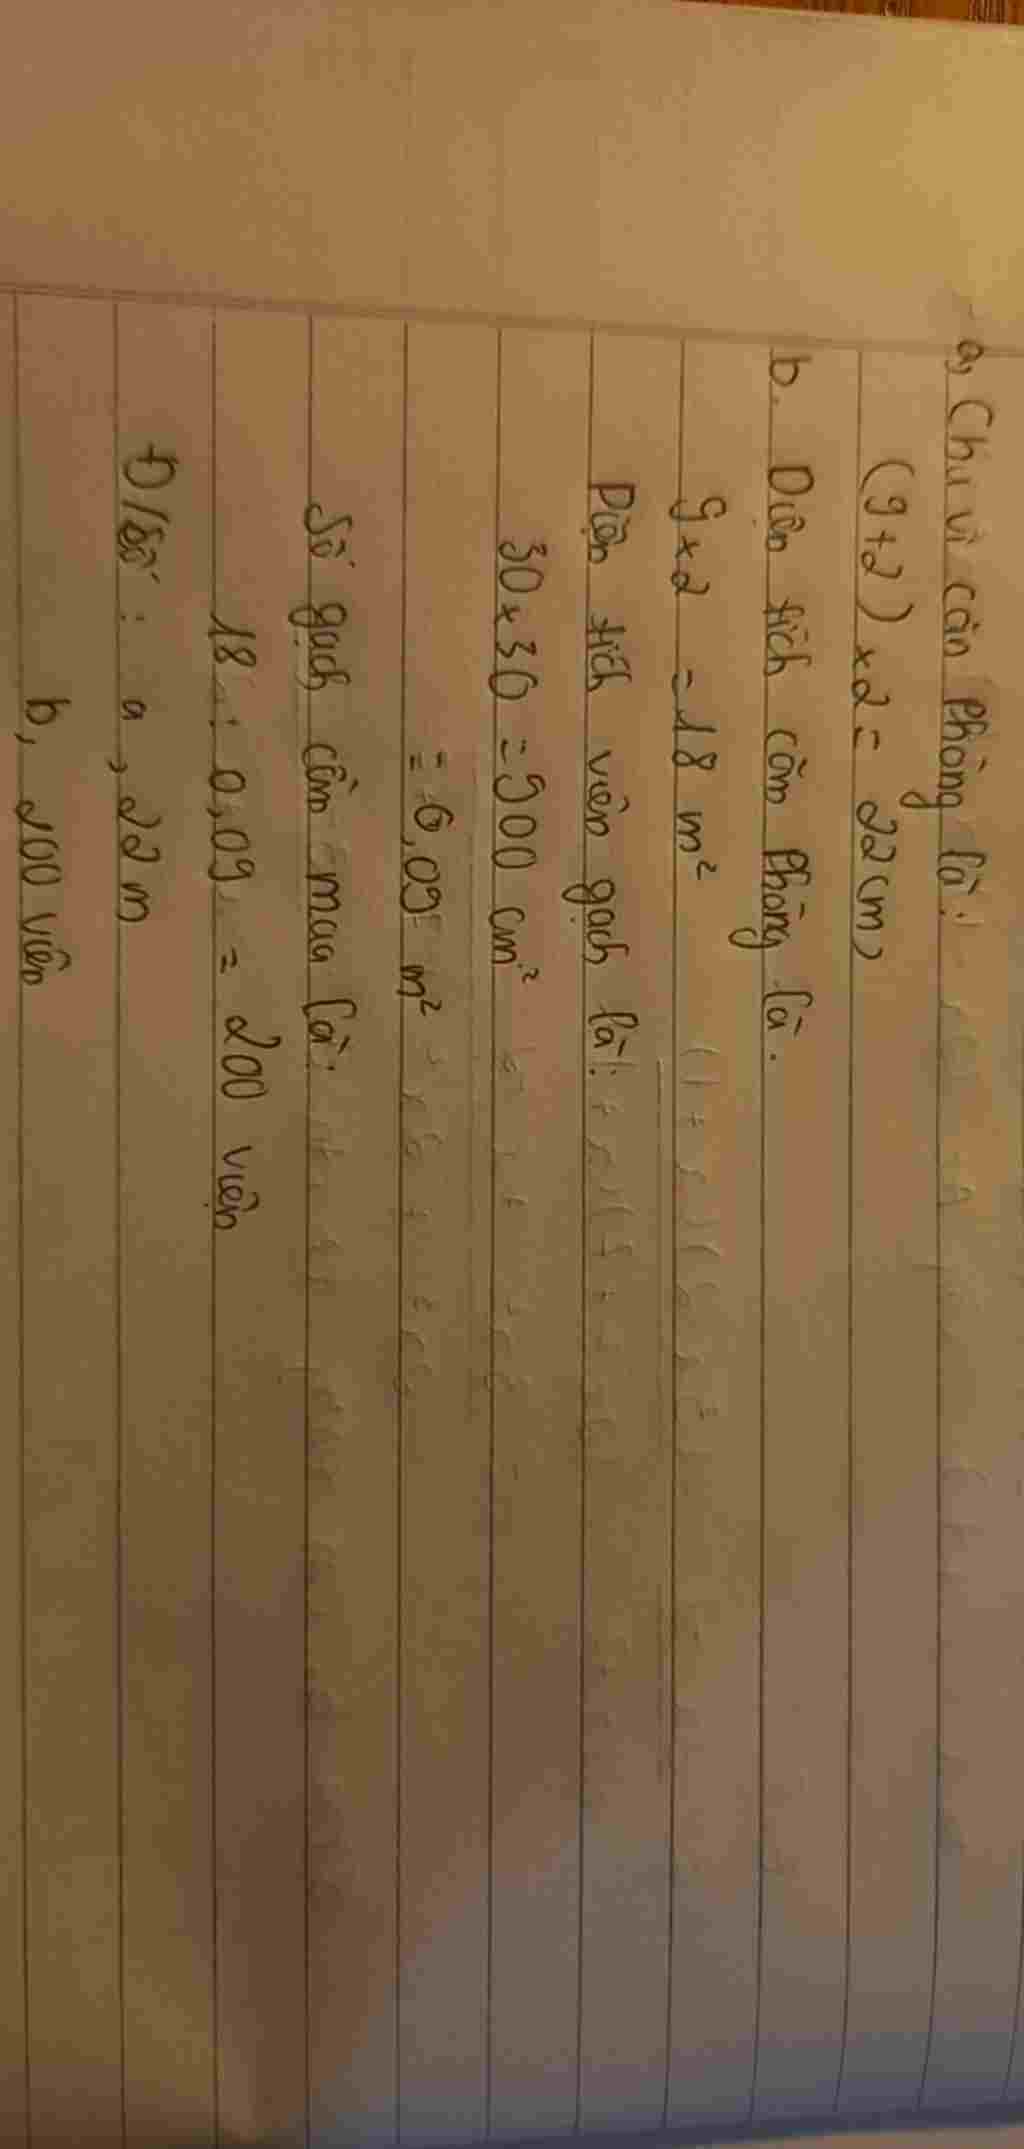 a, Chu vi căn phòng là:
(9+2) x2 = 22 (m)
b. Diện tích căn phòng là.
9 x 2 = 18 m²
Diện tích viên gạch là:
30 x 30 = 900 cm²
= 0,09 m²
Số gạch cần mua là:
18 : 0,09 = 200 viên
Đ/số: a, 22 m
b, 200 viên